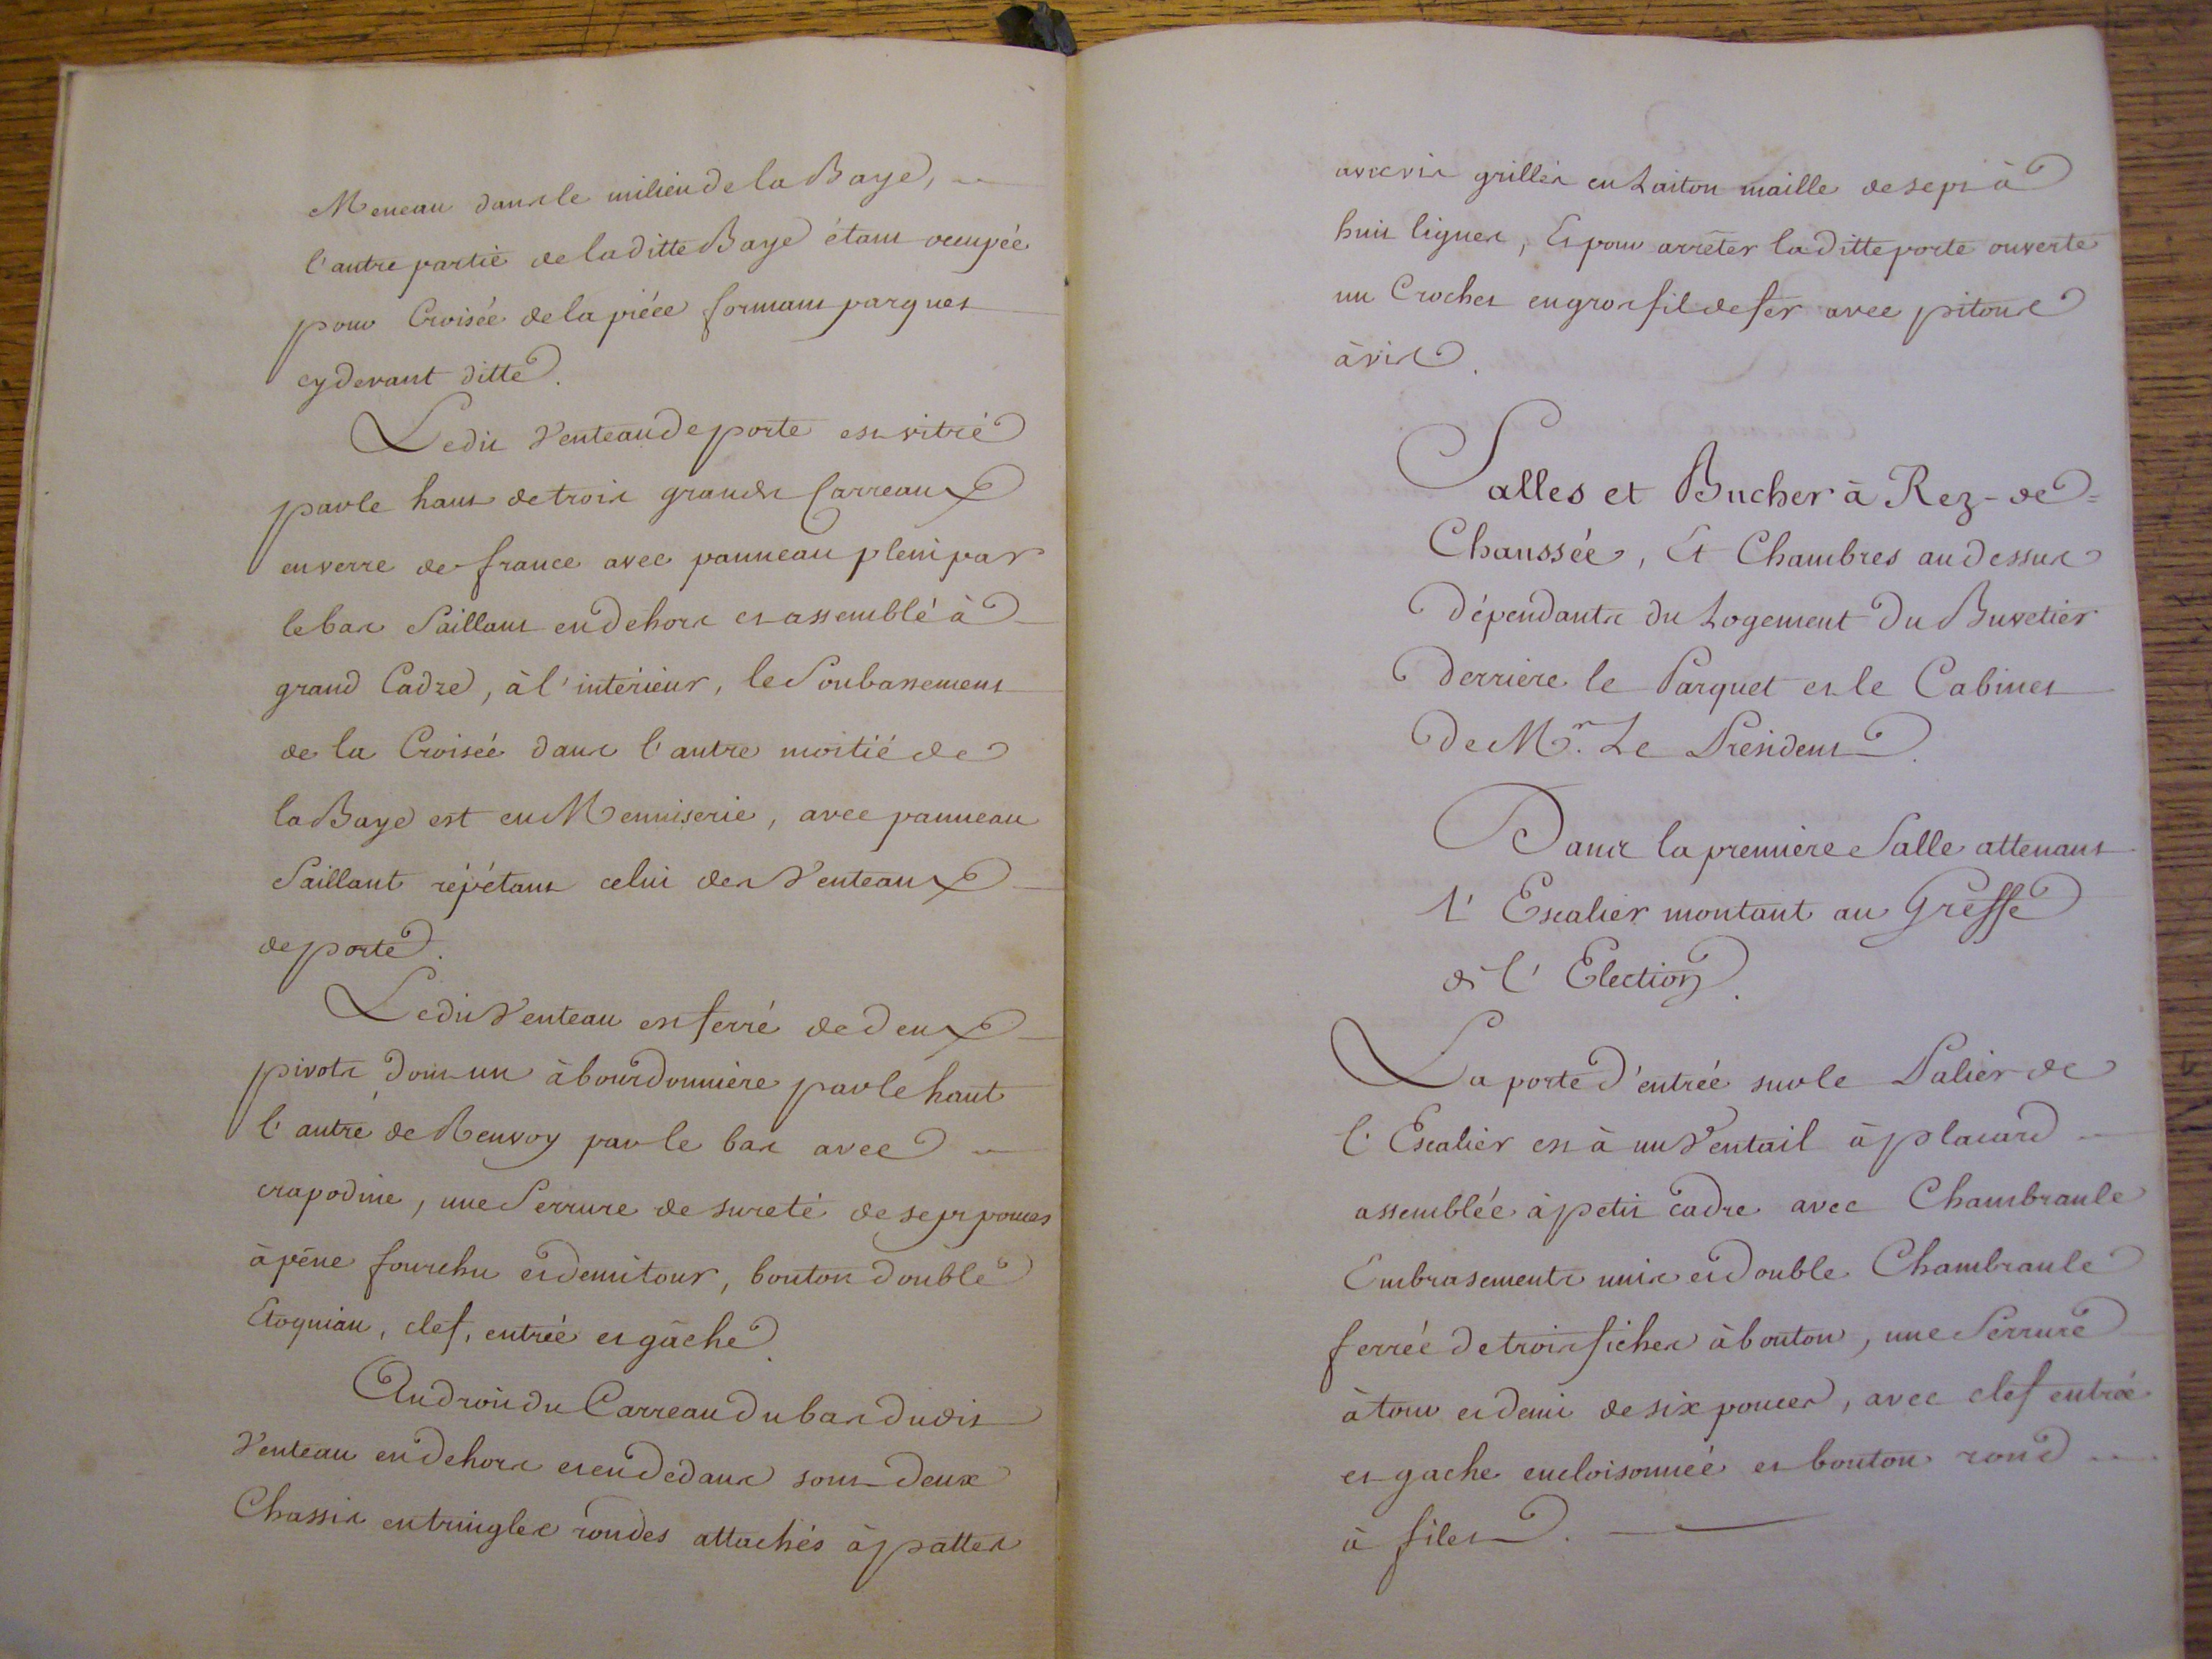 Meneau dans le milieu de la Baye,
l'autre partie de la ditte Baye étant occupée
pour Croisée de la piéce formant parquet
cy devant ditte.
Ledit Venteau de porte est vitré
par le haut de trois grands Carreaux
en verre de france avec panneau plein par
le bas Saillant en dehors et assemblé à
grand Cadre, à l'intérieur, le Soubassement
de la Croisée dans l'autre moitié de
la Baye est en Menuiserie, avec panneau
Saillant répétant celui des Venteaux
de porte.
Ledit Venteau est ferré de deux
pivots dont un à bourdonnière par le haut
l'autre de Renvoy par le bas avec
crapodine, une Serrure de sureté de sept pouces
à pêne fourchu et demi tour, bouton double
Etoquiau, clef, entrée et gâche.
Au droit du Carreau du bas dudit
Venteau en dehors et en dedans sont deux
Chassis en tringles rondes attachés à pattes
avec vis grillés en Laiton maille de sept à
huit lignes, Et pour arrêter la ditte porte ouverte
un Crochet en gros fil de fer avec pitons
à vis.
Salles et Bucher à Rez-de=
Chaussée, Et Chambres au dessus
dépendants du Logement du Buvetier
derriere le Parquet et le Cabinet
de Mr. Le Président.
Dans la premiere Salle attenant
l'Escalier montant au Greffe
de l'Election.
La porte d'entrée sur le Palier de
l'Escalier est à un Ventail à placard
assemblée à petit cadre avec Chambranle
Embrasements unis et double Chambranle
ferrée de trois fiches à bouton, une Serrure
à tour et demi de six pouces, avec clef entrée
et gache encloisonnée et bouton rond
à filet.